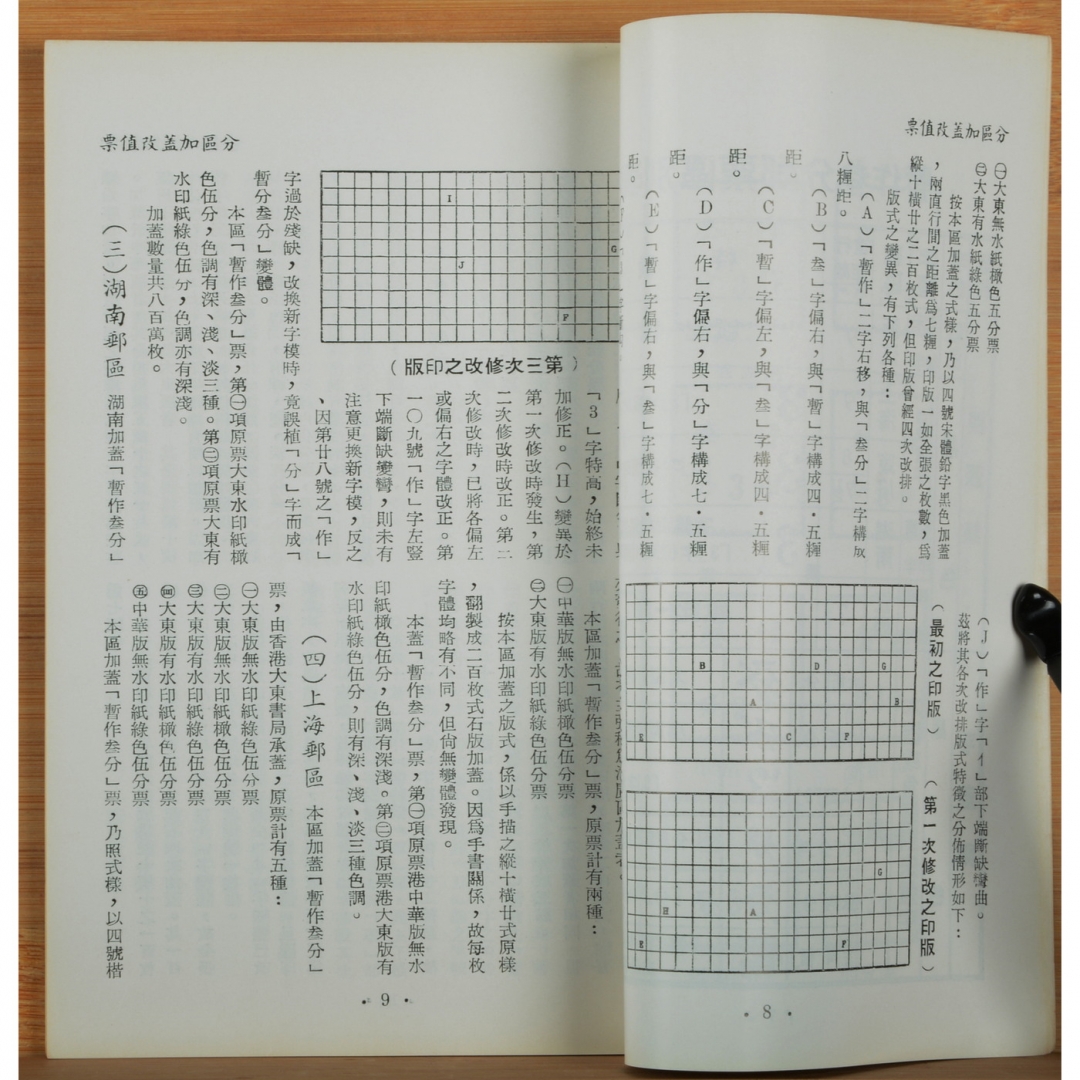 票值改蓋加區分
㊀大東無水紙橄色五分票
㊁大東有水紙綠色五分票
按本區加蓋之式樣，乃以四號宋體鉛字黑色加蓋
，兩直行間之距離爲七糎，印版一如全張之枚數，爲
縱十橫廿之二百枚式，但印版曾經四次改排。
版式之變異，有下列各種：
（A）「暫作」二字右移，與「叁分」二字構成
八糎距。
（B）「叁」字偏右，與「暫」字構成四·五糎
距。
（C）「暫」字偏左，與「叁」字構成四·五糎
距。
（D）「作」字偏右，與「分」字構成七·五糎
距。
（E）「暫」字偏右，與「叁」字構成七·五糎
距。
（J）「作」字「亻」部下端斷缺彎曲。
茲將其各次改排版式特徵之分佈情形如下：
（最初之印版）
B D G
A B
E C F
（第一次修改之印版）
G
H A
E F
· 8 ·
票值改蓋加區分
I
G
J
F
（版印之改修次三第）
「3」字特高，始終未
加修正。（H）變異於
第一次修改時發生，第
二次修改時改正。第二
次修改時，已將各偏左
或偏右之字體改正。第
一〇九號「作」字左豎
下端斷缺變彎，則未有
注意更換新字模，反之
、因第廿八號之「作」
字過於殘缺，改換新字模時，竟誤植「分」字而成「
暫分叁分」變體。
本區「暫作叁分」票，第㊀項原票大東水印紙橄
色伍分，色調有深、淺、淡三種。第㊁項原票大東有
水印紙綠色伍分，色調亦有深淺。
加蓋數量共八百萬枚。
（三）湖南郵區 湖南加蓋「暫作叁分」
本區加蓋「暫作叁分」票，原票計有兩種：
㊀中華版無水印紙橄色伍分票
㊁大東版有水印紙綠色伍分票
按本區加蓋之版式，係以手描之縱十橫廿式原樣
，翻製成二百枚式石版加蓋。因爲手書關係，故每枚
字體均略有不同，但尙無變體發現。
本蓋「暫作叁分」票，第㊀項原票港中華版無水
印紙橄色伍分，色調有深淺。第㊁項原票港大東版有
水印紙綠色伍分，則有深、淺、淡三種色調。
（四）上海郵區 本區加蓋「暫作叁分」
票，由香港大東書局承蓋，原票計有五種：
㊀大東版無水印紙綠色伍分票
㊁大東版無水印紙橄色伍分票
㊂大東版有水印紙綠色伍分票
㊃大東版有水印紙橄色伍分票
㊄中華版無水印紙綠色伍分票
本區加蓋「暫作叁分」票，乃照式樣，以四號楷
· 9 ·